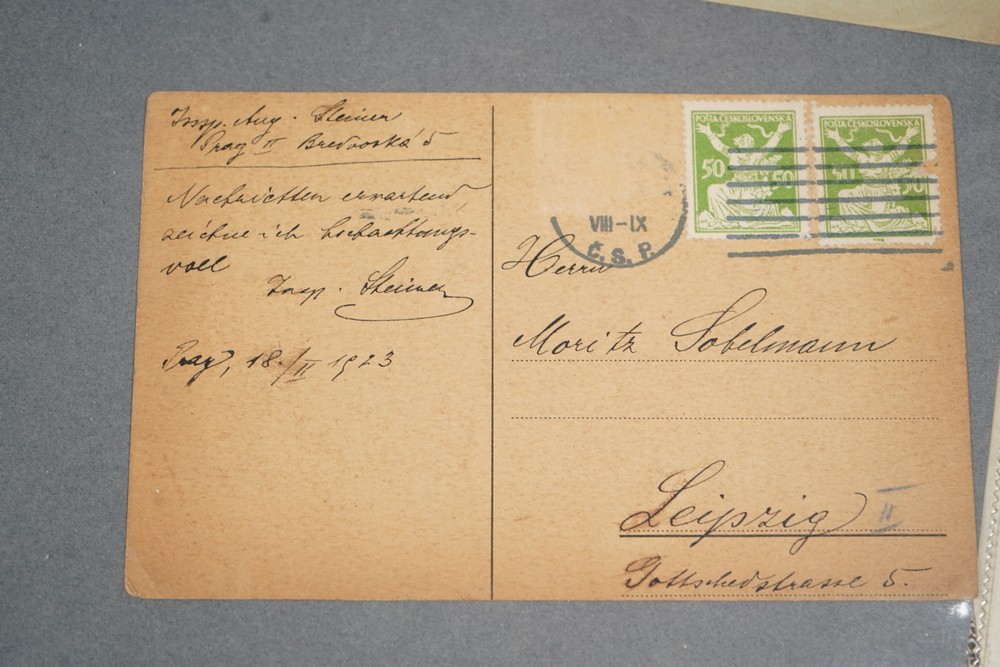 Insp. Aug. Steiner
Prag II Bredovská 5
Nachrichten erwartend,
zeichne ich hochachtungs-
voll
Insp. Steiner
Prag, 18./II 1923
POŠTA ČESKOSLOVENSKÁ
50 50
POŠTA ČESKOSLOVENSKÁ
50 50
VIII-IX
Č.S.P.
Herrn
Moritz Sobelmann
Leipzig II
Gottschedstrasse 5.